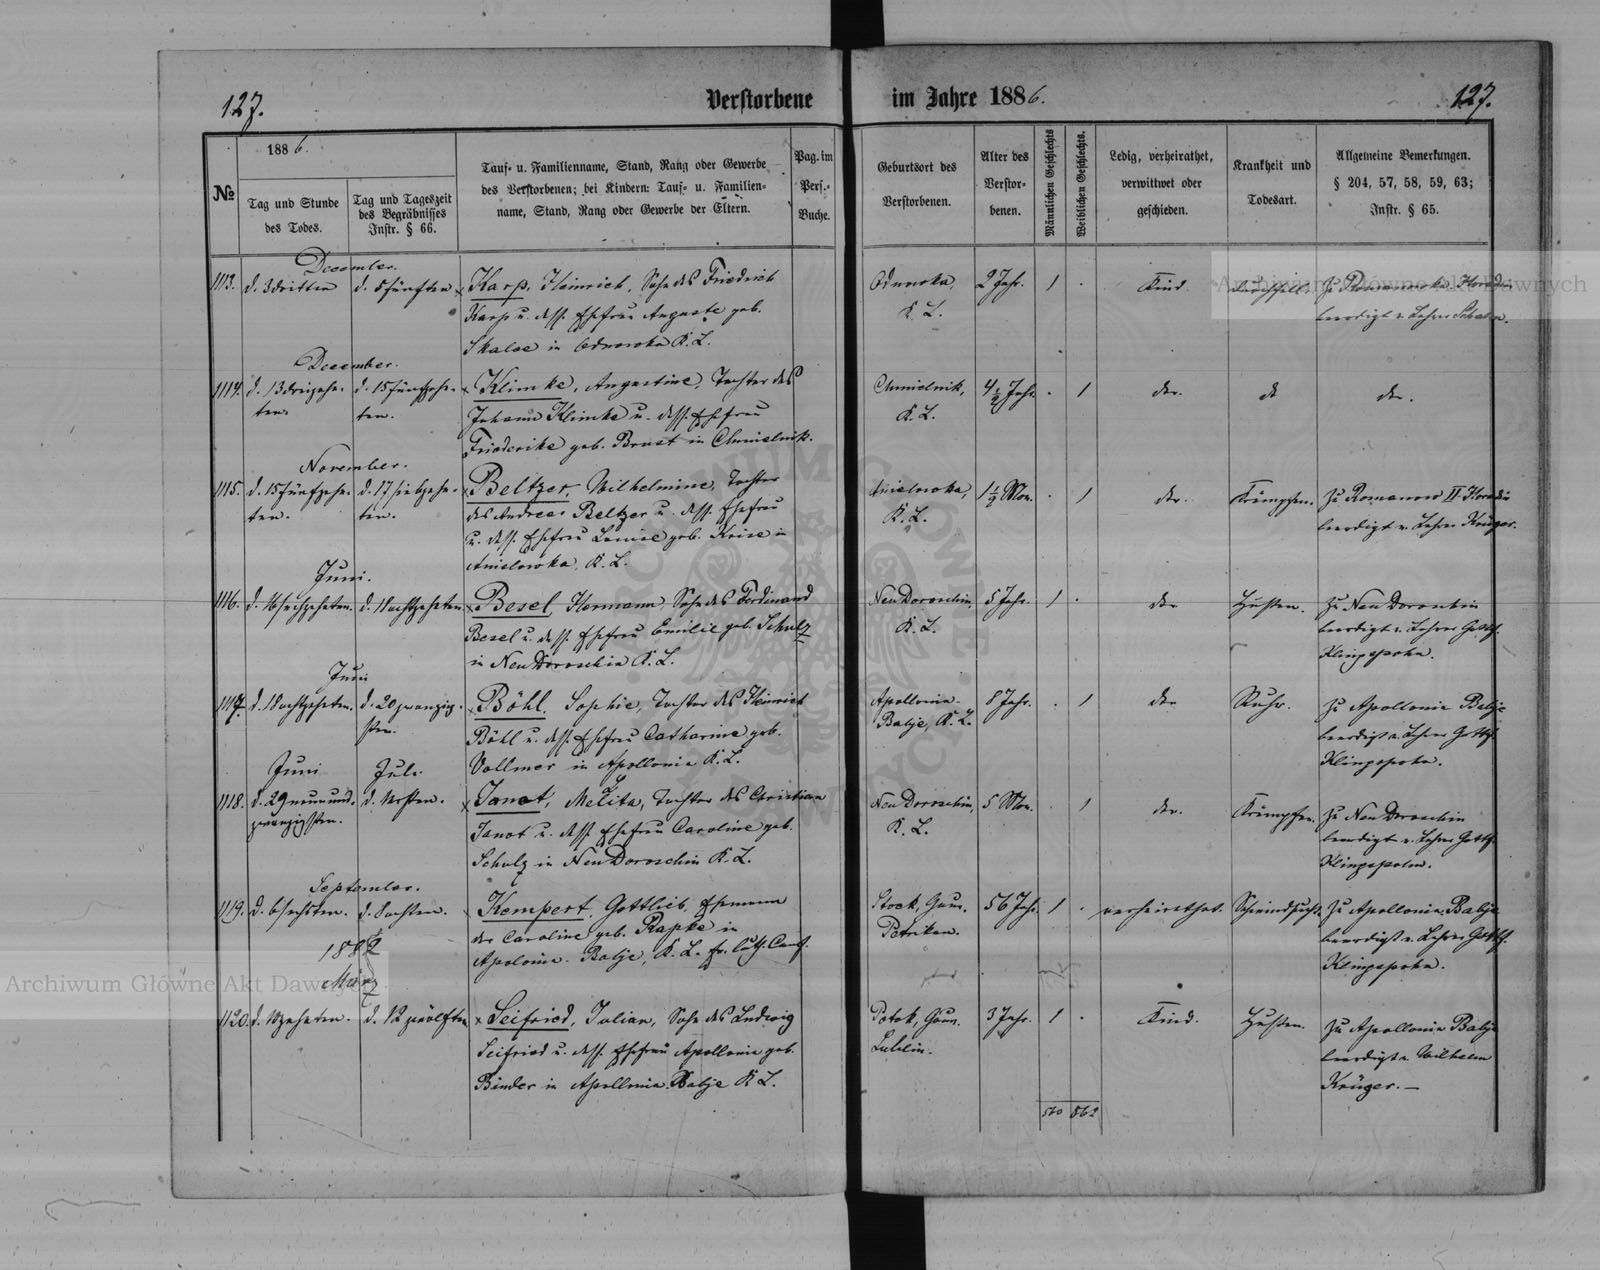 127.
Verstorbene im Jahre 1886.
127.
№
1886.
Tag und Stunde
des Todes.
Tag und Tageszeit
des Begräbnisses
Instr. § 66.
Tauf- u. Familienname, Stand, Rang oder Gewerbe
des Verstorbenen; bei Kindern: Tauf- u. Familien-
name, Stand, Rang oder Gewerbe der Eltern.
Pag. im
Pers.-
Buche.
Geburtsort des
Verstorbenen.
Alter des
Verstor-
benen.
Männlichen Geschlechts
Weiblichen Geschlechts.
Ledig, verheirathet,
verwittwet oder
geschieden.
Krankheit und
Todesart.
Allgemeine Bemerkungen.
§ 204, 57, 58, 59, 63;
Instr. § 65.
December.
1113. d. 3 dritten d. 5 fünften Karp, Heinrich, Sohn des Friedrich
Karp u. dess. Ehefrau Auguste geb.
Skalee in K. L.
K. L.
2 Jahr. 1 .
Kind.
zu Romanowka
beerdigt v. Lehrer
December.
1114. d. 13 dreizehn-
ten.
d. 15 fünfzehn-
ten.
Klimke, Augustine, Tochter des
Johann Klimke u. dess. Ehefrau
Friederike geb. Brust in Chmielnik.
Chmielnik,
K. L.
4 1/2 Jahr. . 1
November.
1115. d. 15 fünfzehn-
ten.
d. 17 siebzehn-
ten.
Beltzer, Wilhelmine, Tochter
des Andreas Beltzer u. dess. Ehefrau
u. dess. Ehefrau Louise geb. Kriese in
Anielowka, K. L.
Anielowka,
K. L.
1 1/2 Mon. . 1
Krämpfen.
zu Romanow II
beerdigt v. Lehrer Krüger.
Juni.
1116. d. 16 sechzehnten. d. 18 achtzehnten. Besel, Hermann, Sohn des Ferdinand
Besel u. dess. Ehefrau Emilie geb. Schulz
in Neu Doroschin K. L.
Neu Doroschin,
K. L.
5 Jahr. 1 .
Husten.
zu Neu Doroschin
beerdigt v. Lehrer Gottf.
Klingspohn.
Juni
1117. d. 18 achtzehnten. d. 20 zwanzig-
sten.
Böhl, Sophie, Tochter des Heinrich
Böhl u. dess. Ehefrau Catharine geb.
Vollmer in Apollonia K. L.
Apollonia-
Balje, K. L.
8 Jahr. . 1
Ruhr.
zu Apollonia Balje
beerdigt v. Lehrer Gottf.
Klingspohn.
Juni
Juli
1118. d. 29 neunund-
zwanzigsten.
d. 1 ersten.
Janot, Melita, Tochter des Christian
Janot u. dess. Ehefrau Caroline geb.
Schulz in Neu Doroschin K. L.
Neu Doroschin,
K. L.
5 Mon. . 1
Krämpfen.
zu Neu Doroschin
beerdigt v. Lehrer Gottf.
Klingspohn.
September.
1119. d. 6 sechsten. d. 8 achten. Kempert, Gottlieb, Ehemann
der Caroline geb. Rapke in
Apolonia-Balje, K. L.
Stock, Gouv.
Petrikau.
56 Jahr. 1 .
verheirathet.
Schwindsucht.
zu Apollonia Balje
beerdigt v. Lehrer Gottf.
Klingspohn.
1882
März
1120. d. 10 zehnten. d. 12 zwölften Seifried, Julian, Sohn des Ludwig
Seifried u. dess. Ehefrau Apollonia geb.
Binder in Apollonia Balje K L.
Potok, Gouv.
Lublin.
3 Jahr. 1 .
Kind.
Husten.
zu Apollonia Balje
beerdigt v. Wilhelm
Krüger. —
Archiwum Główne Akt Dawnych
Archiwum Główne Akt Dawnych
ARCHIWUM GŁÓWNE AKT DAWNYCH